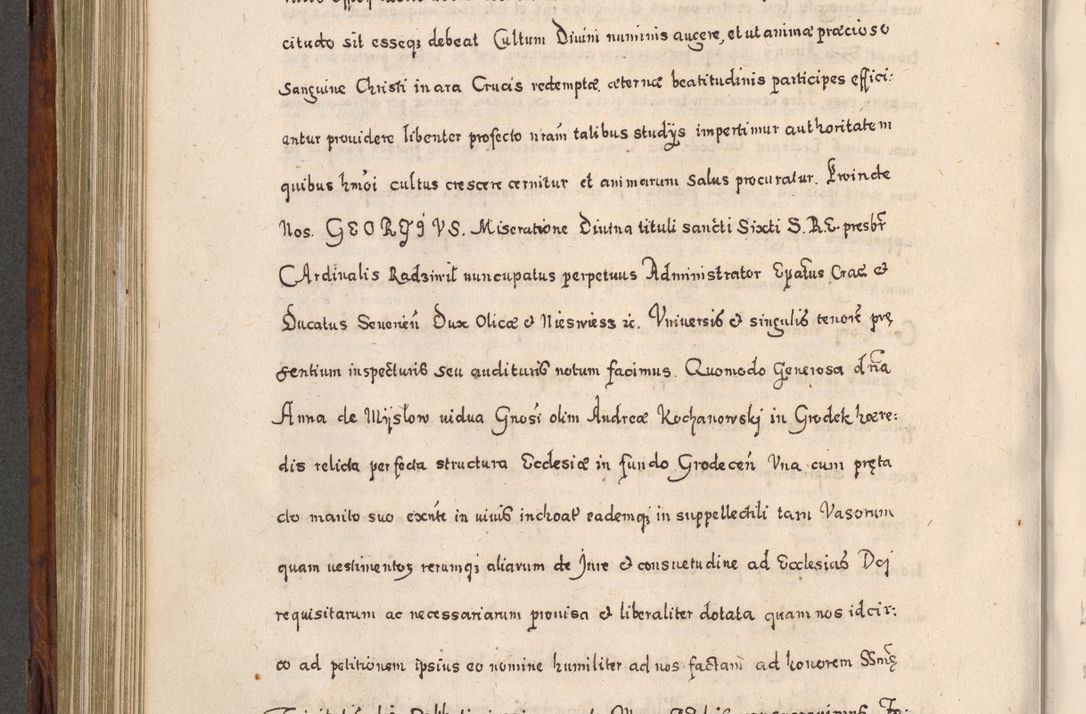 citudo sit esseqȝ debeat Cultum Diuini numinis augere, et ut animæ præcioso
Sanguine Christi in ara Crucis redemptæ, æternæ beatitudinis participes effici:
antur prouidere libenter profecto nram̃ talibus studÿs impertimur authoritatem
quibus hmõi cultus crescere cernitur et animarum salus procuratur. Proinde
Nos. GEORGIVS. Miseratione Diuina tituli sancti Sixti S.R.E. presbr̃
CArdinalis Radziwil nuncupatus perpetuus Administrator Epatus Crac̃ &
Ducatus Seuerien̄ Dux Olicæ & Nieswiesz ꝛc. Vniuersis & singulis tenore prę
sentium inspecturis seu audituris notum facimus. Quomodo Generosa dn̄a
Anna de Mÿslow uidua Gnosi olim Andreæ Kochanowskj in Grodek hære:
dis relicta perfecta structura Ecclesiæ in fundo Grodecen̄ Vna cum pręta
cto marito suo exn̄te in uiuis inchoat eademqȝ in suppellectili tam Vasorum
quam uestimentoȝ rerumqȝ aliarum de Jure & consuetudine ad Ecclesias Dej
requisitarum ac necessariarum prouisa & liberaliter dotata quam nos idcir:
co ad petitionem ipsius eo nomine humiliter ad nos factam ad honorem SSmę